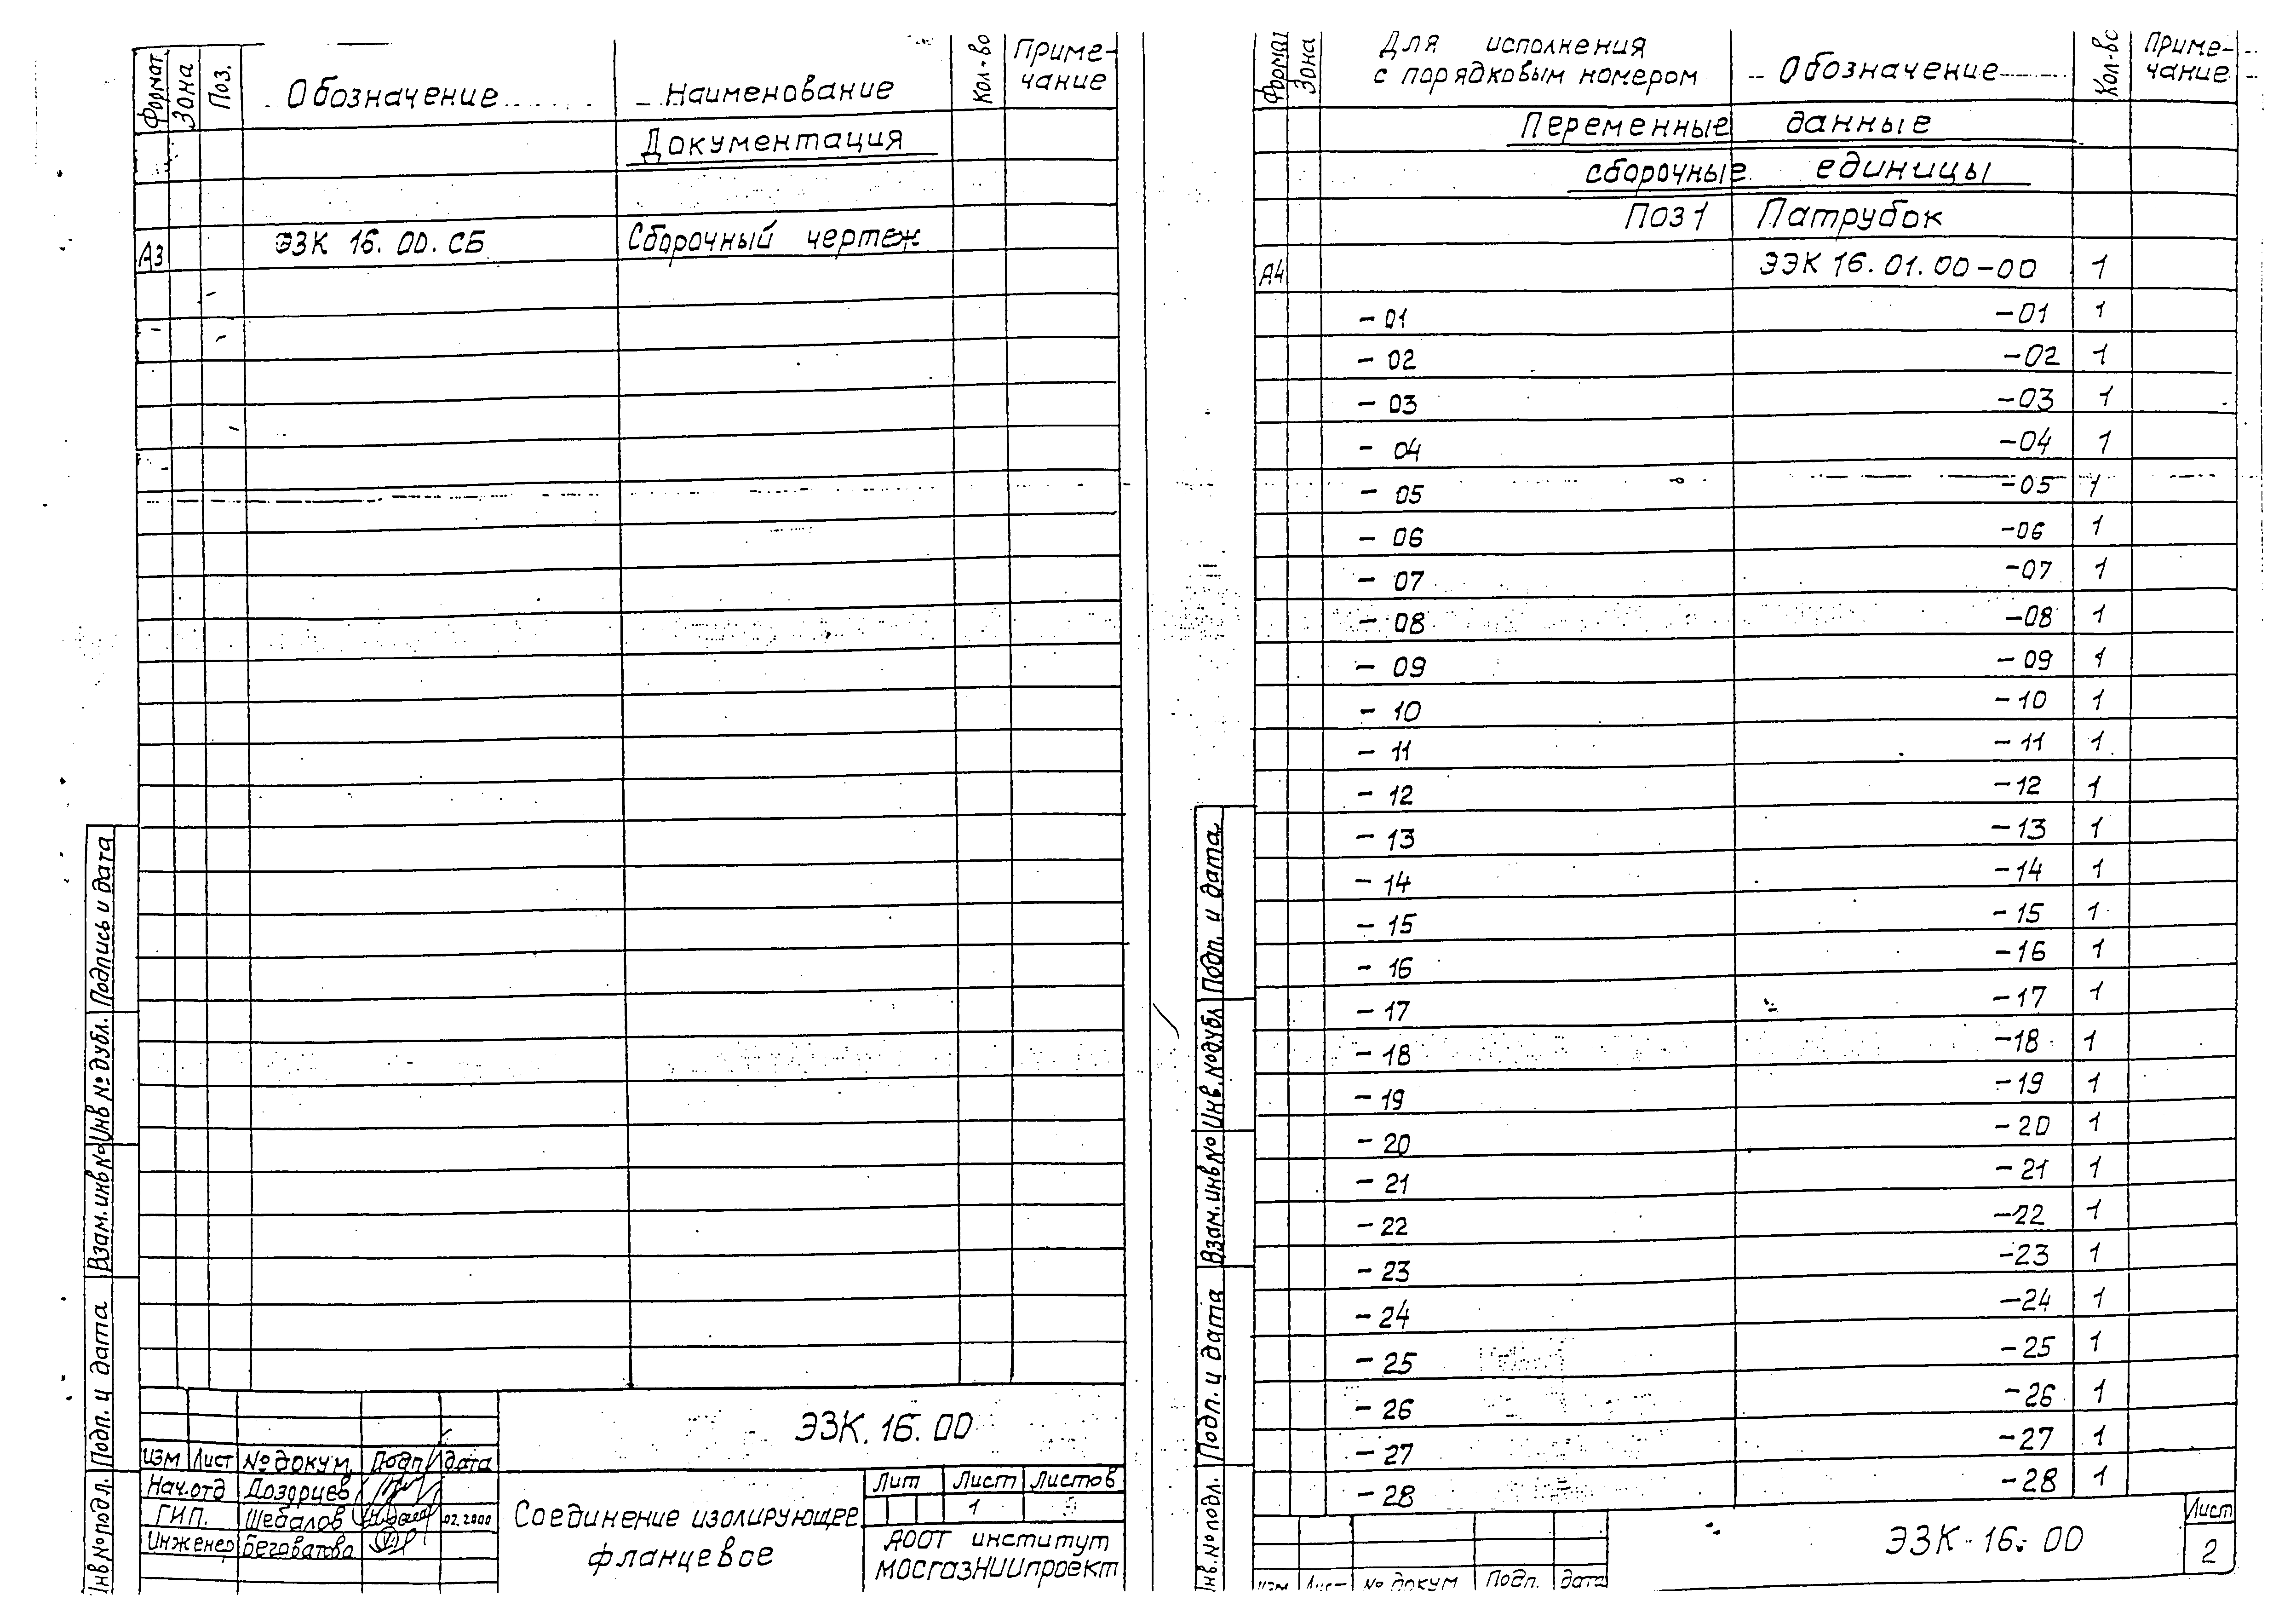 Формат Зона Поз. Обозначение Наименование Кол-во Приме-
чание
Документация
А3 ЭЗК 16.00.СБ Сборочный чертеж
Подпись и дата
Инв № дубл.
Взам.инв №
Подп. и дата
Инв № подл.
ЭЗК.16.00
Изм Лист № докум. Подп. Дата
Нач.отд Дозорцев
ГИП. Шебалов 02.2000
Инженер
Соединение изолирующее
фланцевое
Лит Лист Листов
1 9
АООТ институт
МосгазНИИпроект
Формат Зона Для исполнения
с порядковым номером Обозначение Кол-во Приме-
чание
Переменные данные
сборочные единицы
Поз 1 Патрубок
А4 ЭЗК 16.01.00-00 1
- 01 -01 1
- 02 -02 1
- 03 -03 1
- 04 -04 1
- 05 -05 1
- 06 -06 1
- 07 -07 1
- 08 -08 1
- 09 -09 1
- 10 -10 1
- 11 -11 1
- 12 -12 1
- 13 -13 1
- 14 -14 1
- 15 -15 1
- 16 -16 1
- 17 -17 1
- 18 -18 1
- 19 -19 1
- 20 -20 1
- 21 -21 1
- 22 -22 1
- 23 -23 1
- 24 -24 1
- 25 -25 1
- 26 -26 1
- 27 -27 1
- 28 -28 1
Подп. и дата
Инв.№дубл
Взам.инв №
Подп. и дата
Инв.№ подл.
ЭЗК 16.00
Лист
2
Изм Лист № докум Подп. Дата